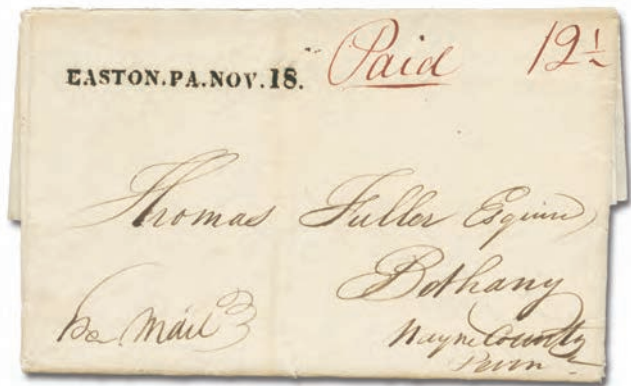 EASTON.PA.NOV.18. Paid 12½
Thomas Fuller Esquire
Bethany
Wayne County
Penn
Mail